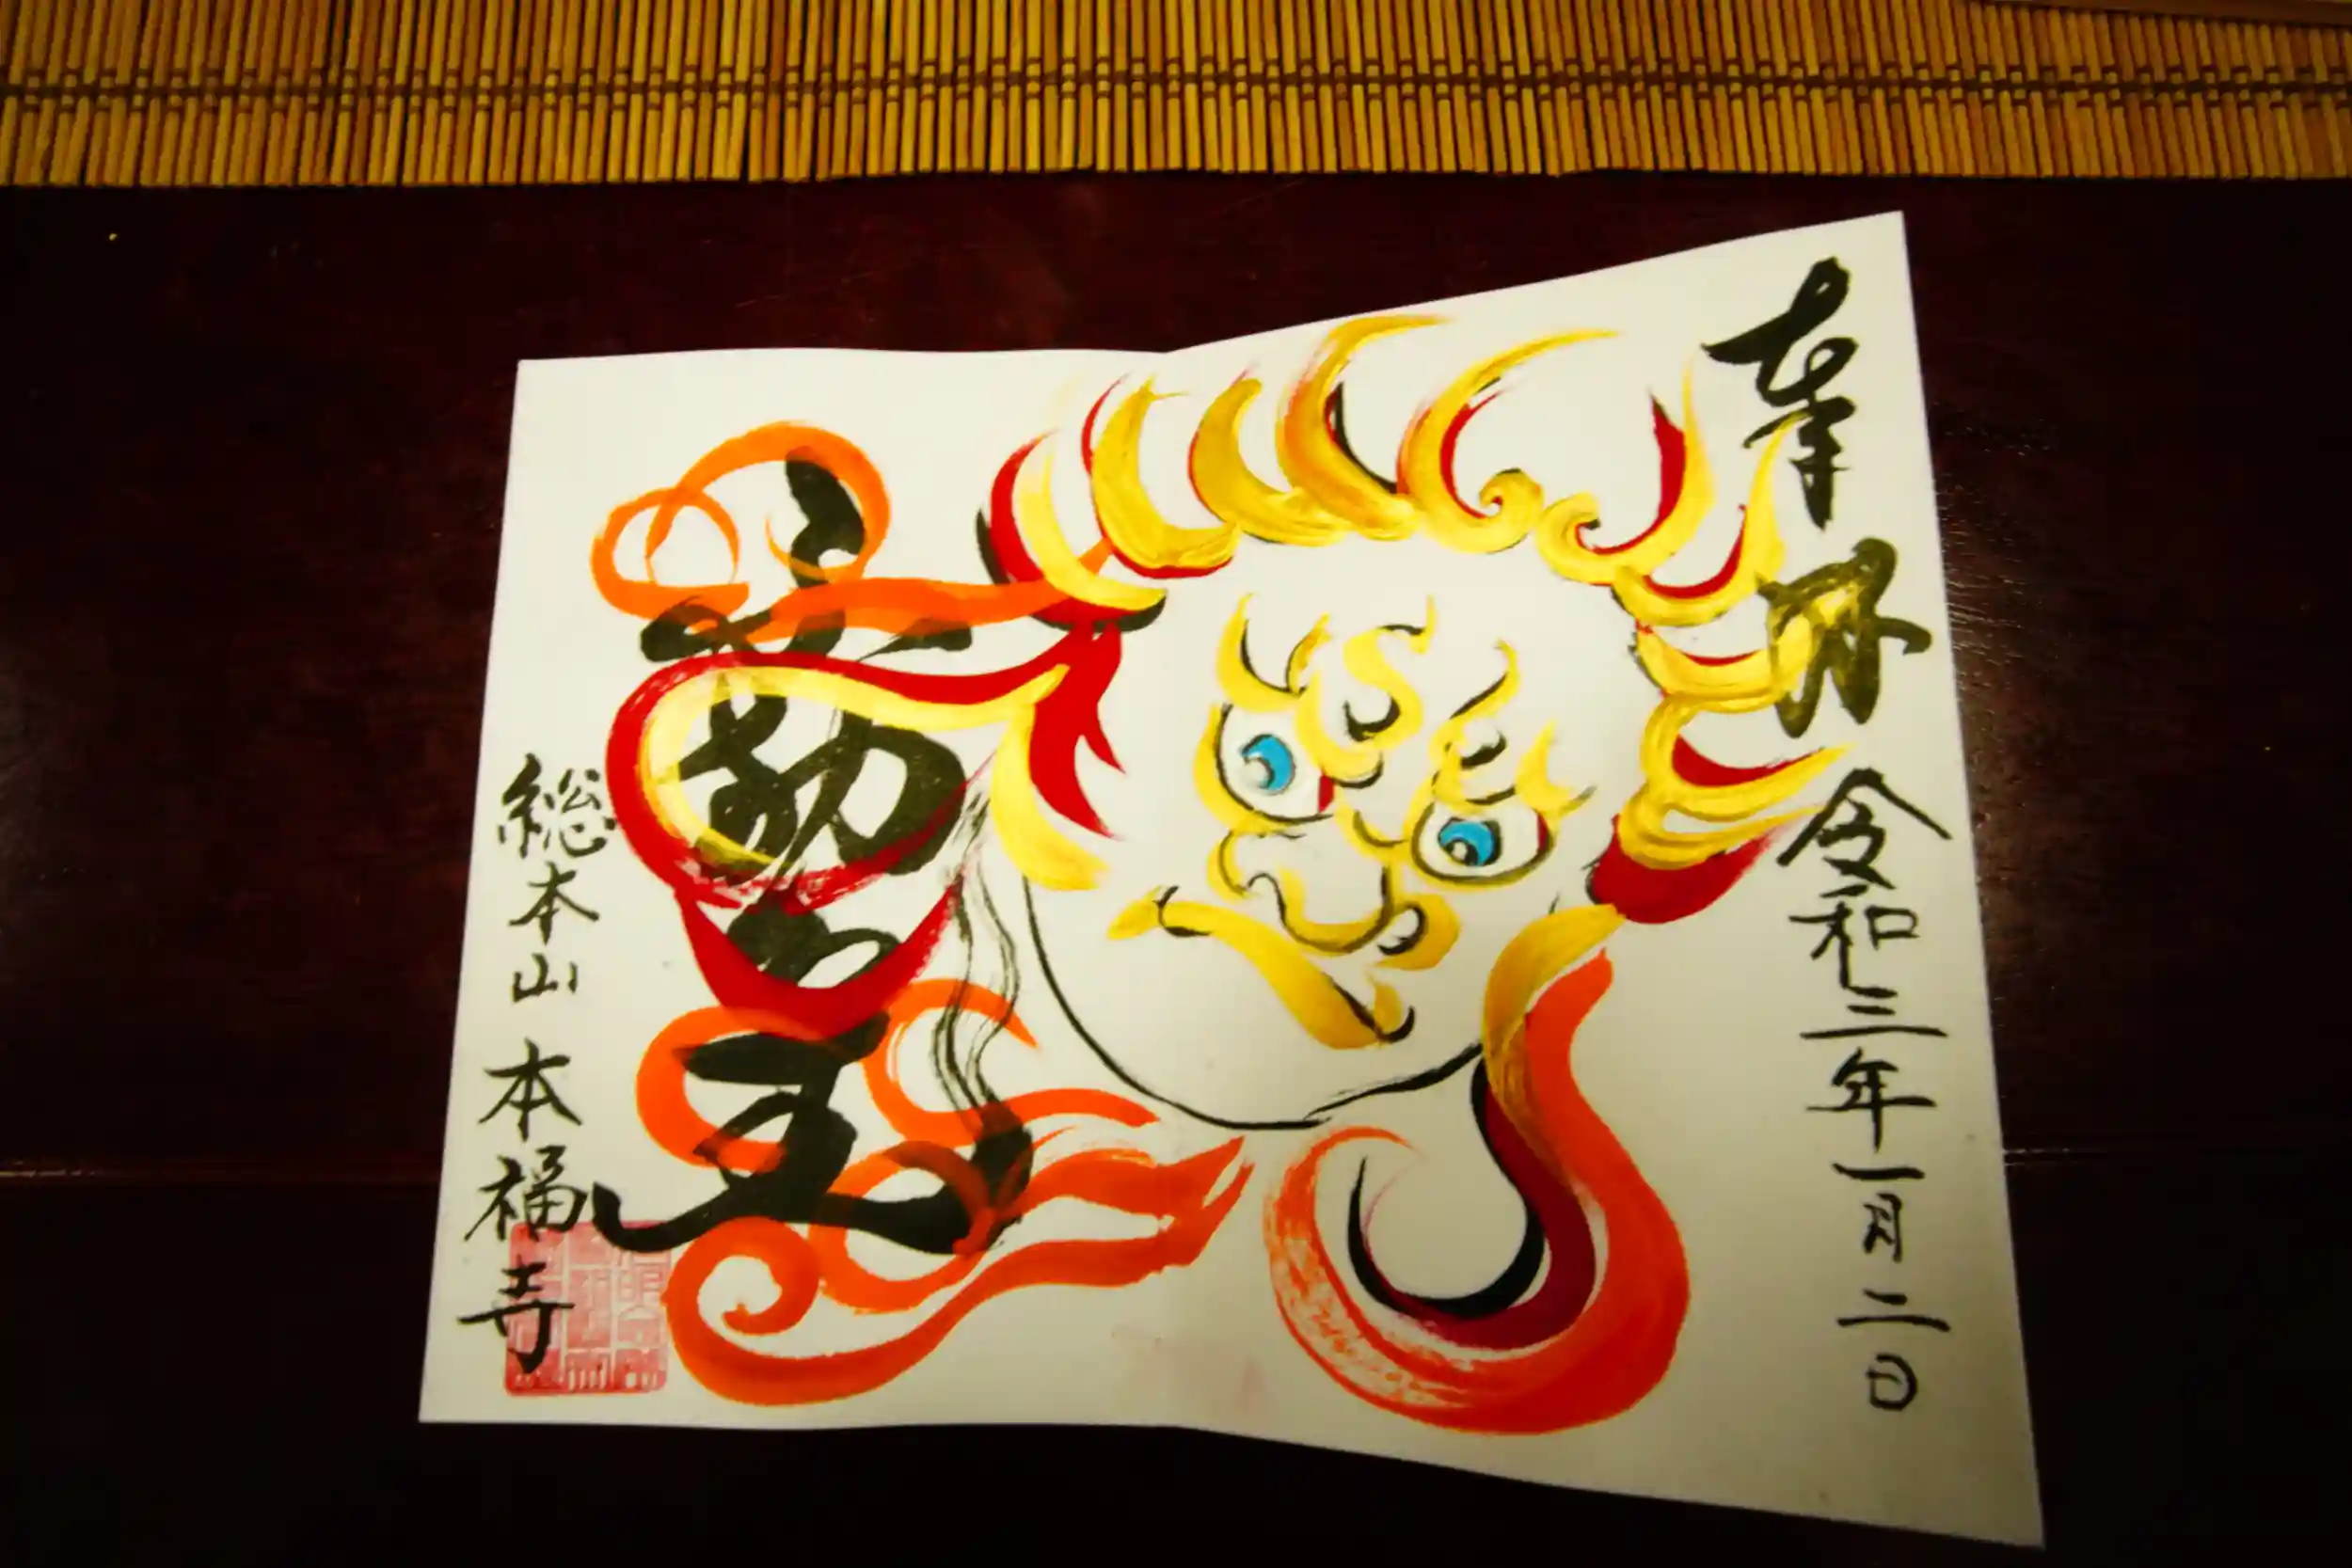 奉拝
令和三年一月二日
不動明王
総本山 本福寺